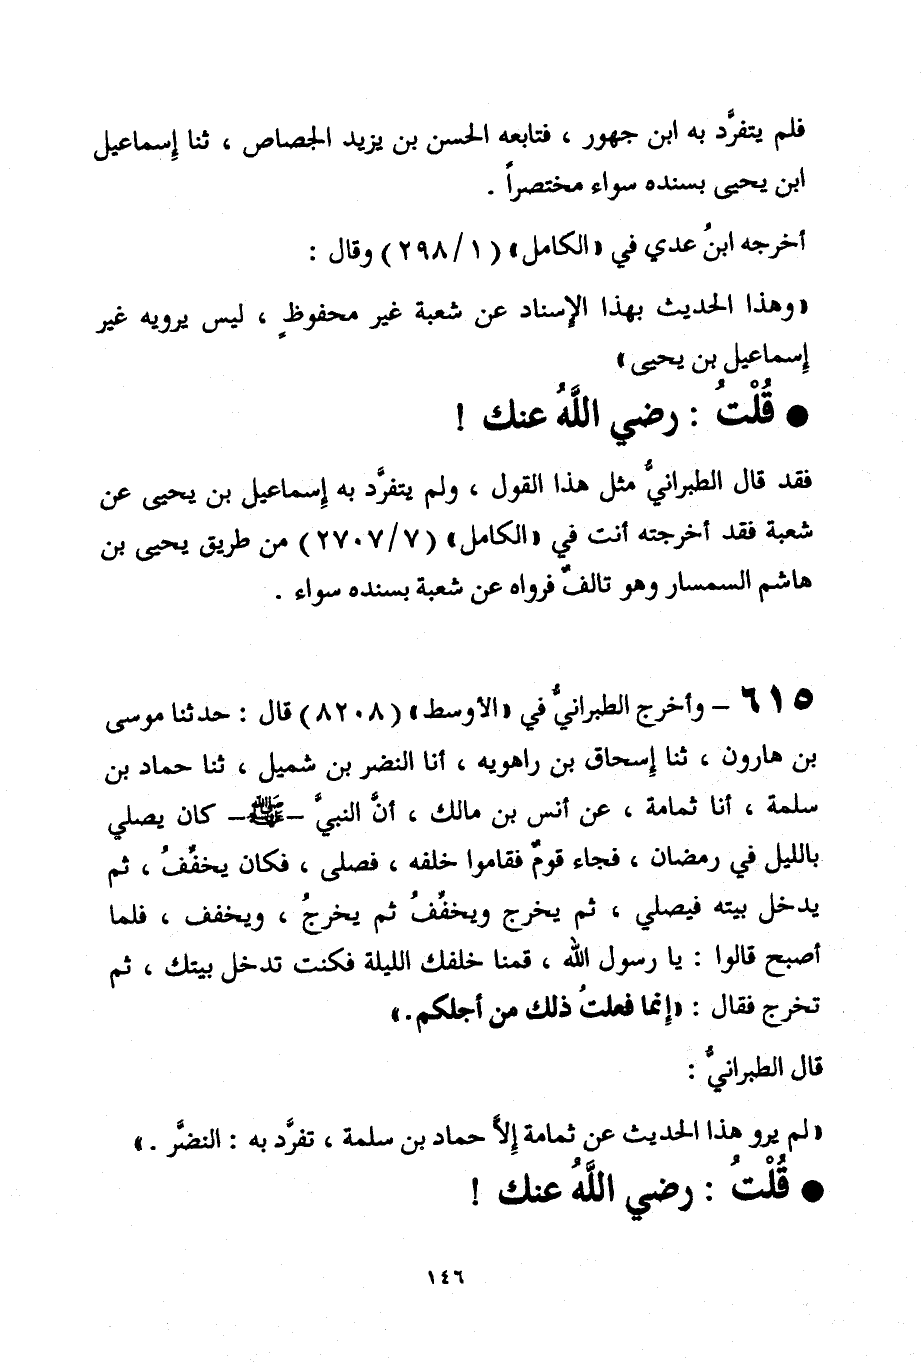 فلم يتفرَّد به ابن جهور ، فتابعه الحسن بن يزيد الجصاص ، ثنا إسماعيل
ابن يحيى بسنده سواء مختصراً .
أخرجه ابنُ عدي في «الكامل» (٢٩٨/١) وقال :
«وهذا الحديث بهذا الإسناد عن شعبة غير محفوظٍ ، ليس يرويه غير
إسماعيل بن يحيى»
● قُلْتُ : رضي اللَّهُ عنك !
فقد قال الطبرانيُّ مثل هذا القول ، ولم يتفرَّد به إسماعيل بن يحيى عن
شعبة فقد أخرجته أنت في «الكامل» (٢٧٠٧/٧) من طريق يحيى بن
هاشم السمسار وهو تالفٌ فرواه عن شعبة بسنده سواء .
٦١٥ – وأخرج الطبرانيُّ في «الأوسط» (٨٢٠٨) قال : حدثنا موسى
بن هارون ، ثنا إسحاق بن راهويه ، أنا النضر بن شميل ، ثنا حماد بن
سلمة ، أنا ثمامة ، عن أنس بن مالك ، أنَّ النبيَّ –ﷺ– كان يصلي
بالليل في رمضان ، فجاء قومٌ فقاموا خلفه ، فصلى ، فكان يخفِّفُ ، ثم
يدخل بيته فيصلي ، ثم يخرج ويخفِّفُ ثم يخرجُ ، ويخفف ، فلما
أصبح قالوا : يا رسول الله ، قمنا خلفك الليلة فكنت تدخل بيتك ، ثم
تخرج فقال : «إنما فعلتُ ذلك من أجلكم.»
قال الطبرانيُّ :
«لم يرو هذا الحديث عن ثمامة إلاَّ حماد بن سلمة ، تفرَّد به : النضَّر .»
● قُلْتُ : رضي اللَّهُ عنك !
١٤٦